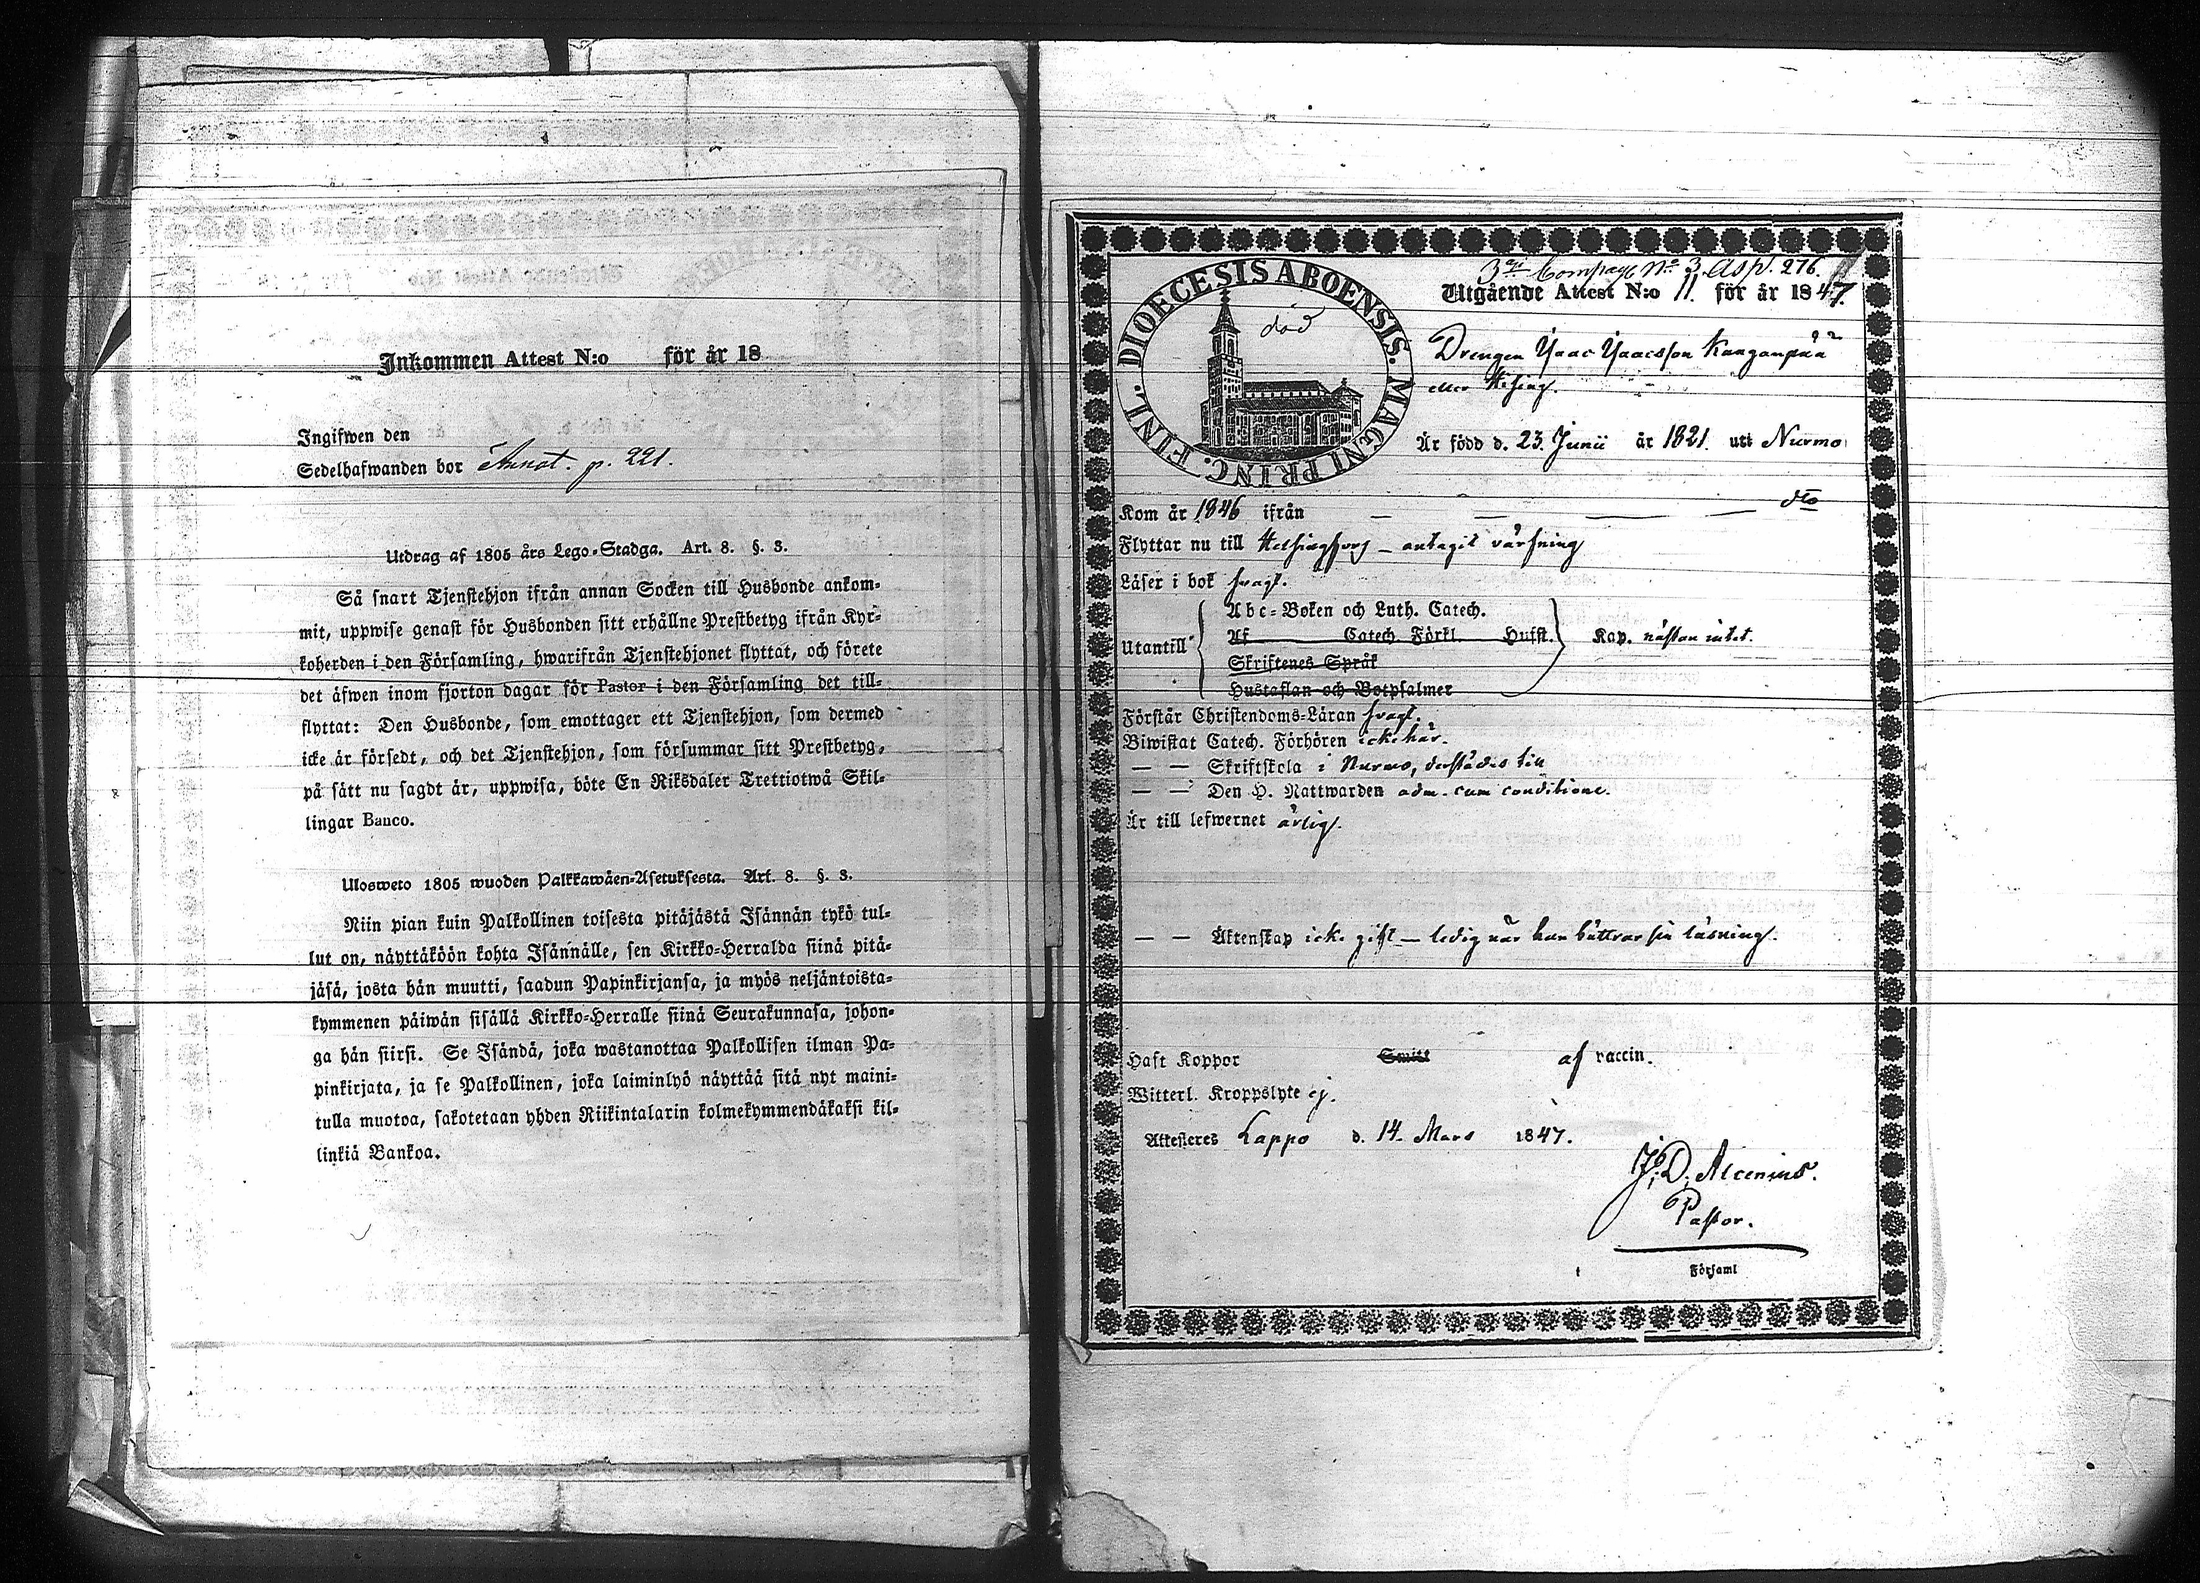 Inkommen Attest N:o för år 18
Ingifwen den
Sedelhafwanden bor Annot. p. 221.
Utdrag af 1805 års Lego-Stadga. Art. 8. §. 3.
Så snart Tjenstehjon ifrån annan Socken till Husbonde ankom-
mit, uppwise genast för Husbonden sitt erhållne Prestbetyg ifrån Kyr-
koherden i den Församling, hwarifrån Tjenstehjonet flyttat, och förete
det äfwen inom fjorton dagar för Pastor i den Församling det till-
flyttat: Den Husbonde, som emottager ett Tjenstehjon, som dermed
icke är försedt, och det Tjenstehjon, som försummar sitt Prestbetyg,
på sätt nu sagdt är, uppwisa, böte En Riksdaler Trettiotwå Skil-
lingar Banco.
Ulosweto 1805 wuoden Palkkawäen-Asetuksesta. Art. 8. §. 3.
Niin pian kuin Palkollinen toisesta pitäjästä Isännän tykö tul-
lut on, näyttäköön kohta Isännälle, sen Kirkko-Herralda siinä pitä-
jäsä, josta hän muutti, saadun Papinkirjansa, ja myös neljäntoista-
kymmenen päiwän sisällä Kirkko-Herralle siinä Seurakunnasa, johon-
ga hän siirsi. Se Isändä, joka wastanottaa Palkollisen ilman Pa-
pinkirjata, ja se Palkollinen, joka laiminlyö näyttää sitä nyt maini-
tulla muotoa, sakotetaan yhden Riikintalarin kolmekymmendäkaksi kil-
linkiä Bankoa.
DIOECESIS ABOENSIS. MAGNI PRINC. FINL.
död
3dje Compagt No 3 Asp. 276.
Utgående Attest N:o 11. för år 1847.
Drengen Isaac Isaacsson Kanganpää
eller Hising.
Är född d. 23. Junii år 1821. uti Nurmo
Kom år 1846 ifrån — — — — dto
Flyttar nu till Helsingfors — antagit värfning
Läser i bok svagt.
Utantill
Abc-Boken och Luth. Catech.
Af Catech. Förkl. Hufst.
Skriftenes Språk
Hustaflan och Botpsalmer
Kap. nästan intet.
Förstår Christendoms-Läran svagt.
Biwistat Catech. Förhören icke här.
— — Skriftskola i Nurmo, derstädes till
— — Den H. Nattwarden adm. cum conditione.
Är till lefwernet ärlig.
— — Äktenskap icke gift — ledig når han bättrar sin läsning.
Haft Koppor Smitt af vaccin.
Witterl. Kroppslyte ej.
Attesteres Lappo d. 14. Mars 1847.
J. D. Alcenius.
Pastor.
Församl